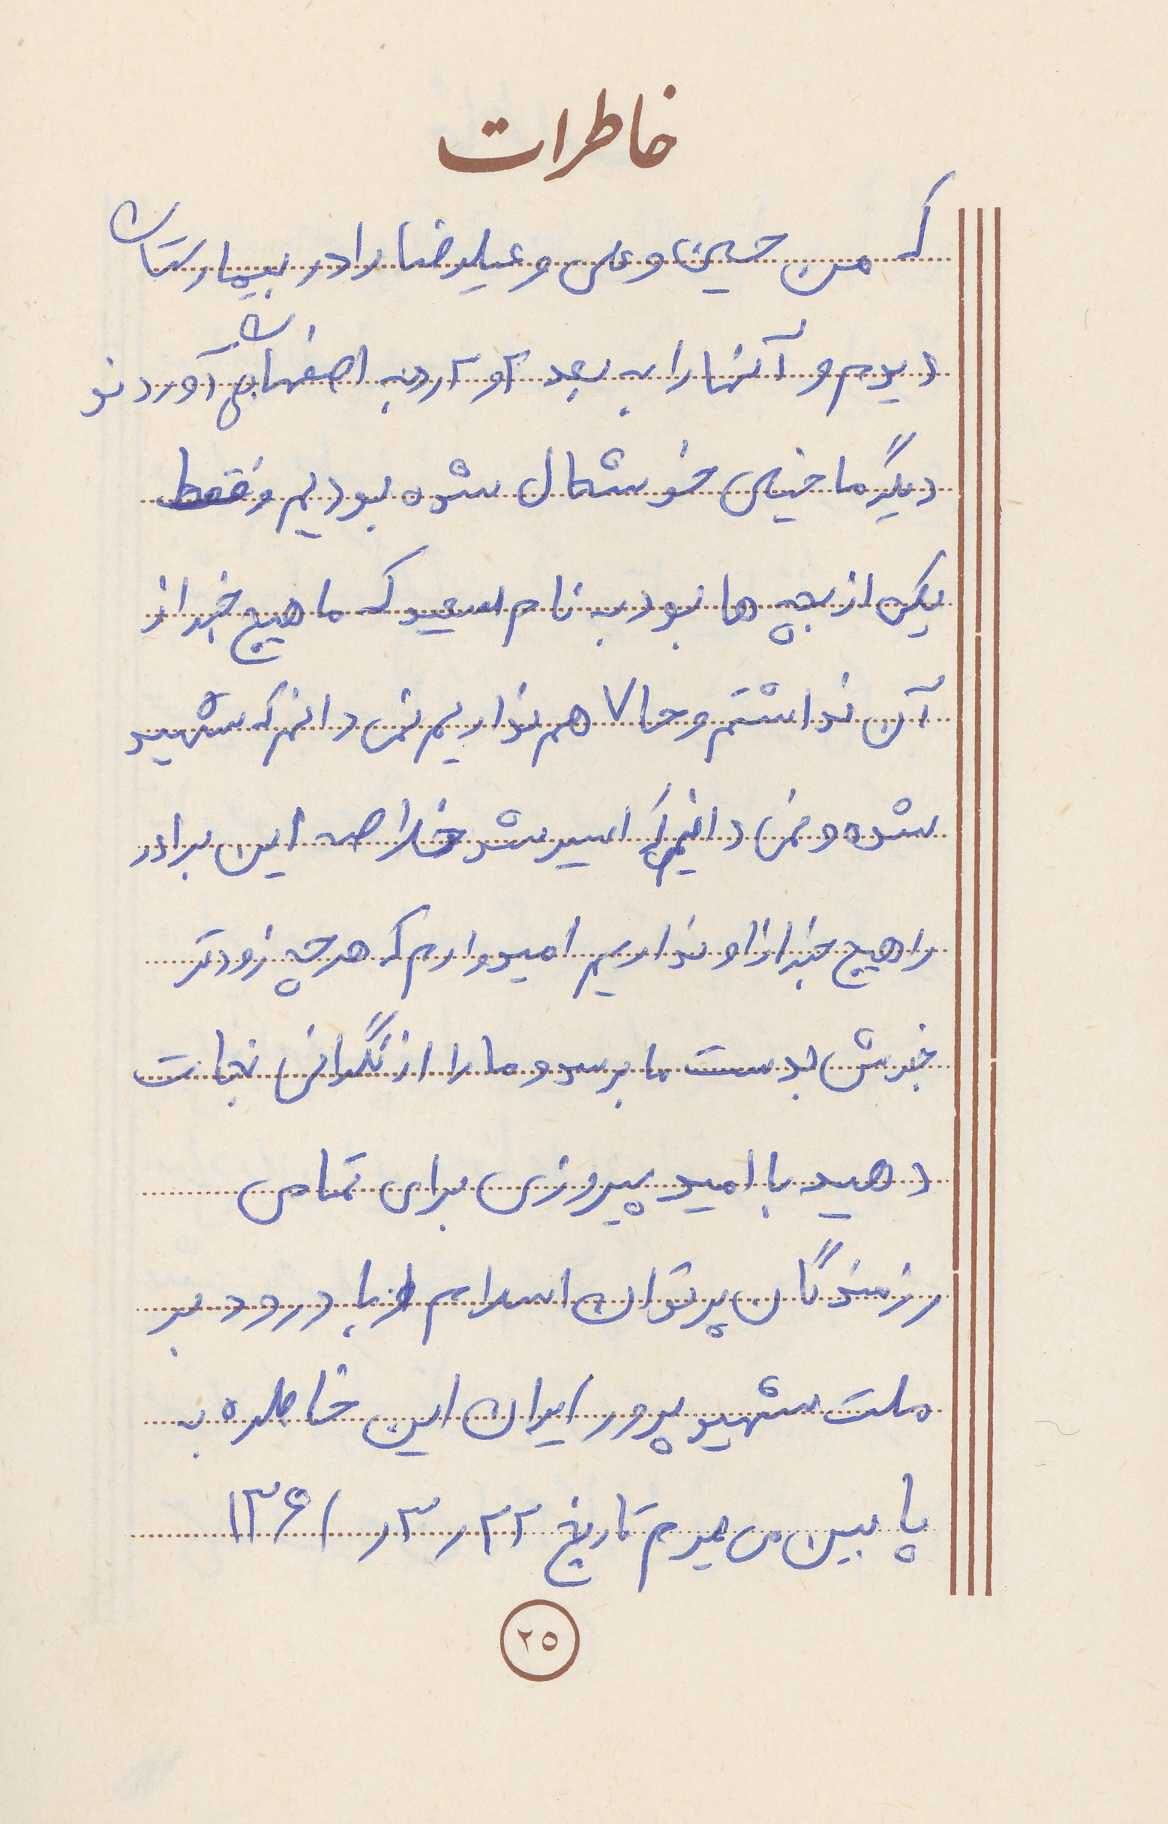 خاطرات
که من حسین و علی و علیرضا را در بیمارستان
دیدم و آنها را به بعد به اصفهان آوردند
دیگر ما خیلی خوشحال شده بودیم و فقط
یکی از بچه ها نبود به نام سعید که ما هیچ خبر از
آن نداشتم و حالا هم نداریم نمی دانم که شهید
شده و نمی دانیم که اسیر شد خلاصه این برادر
را هیچ خبر از او نداریم امیدوارم که هر چه زودتر
خبرش بدست ما برسد و ما را از نگرانی نجات
دهید با امید پیروزی برای تمامی
رزمندگان پرتوان اسلام و با درود بر
ملت شهید پرور ایران این خاطره به
پایین می برم تاریخ ۲۲ر۳ر۱۳۶۱
۲۵